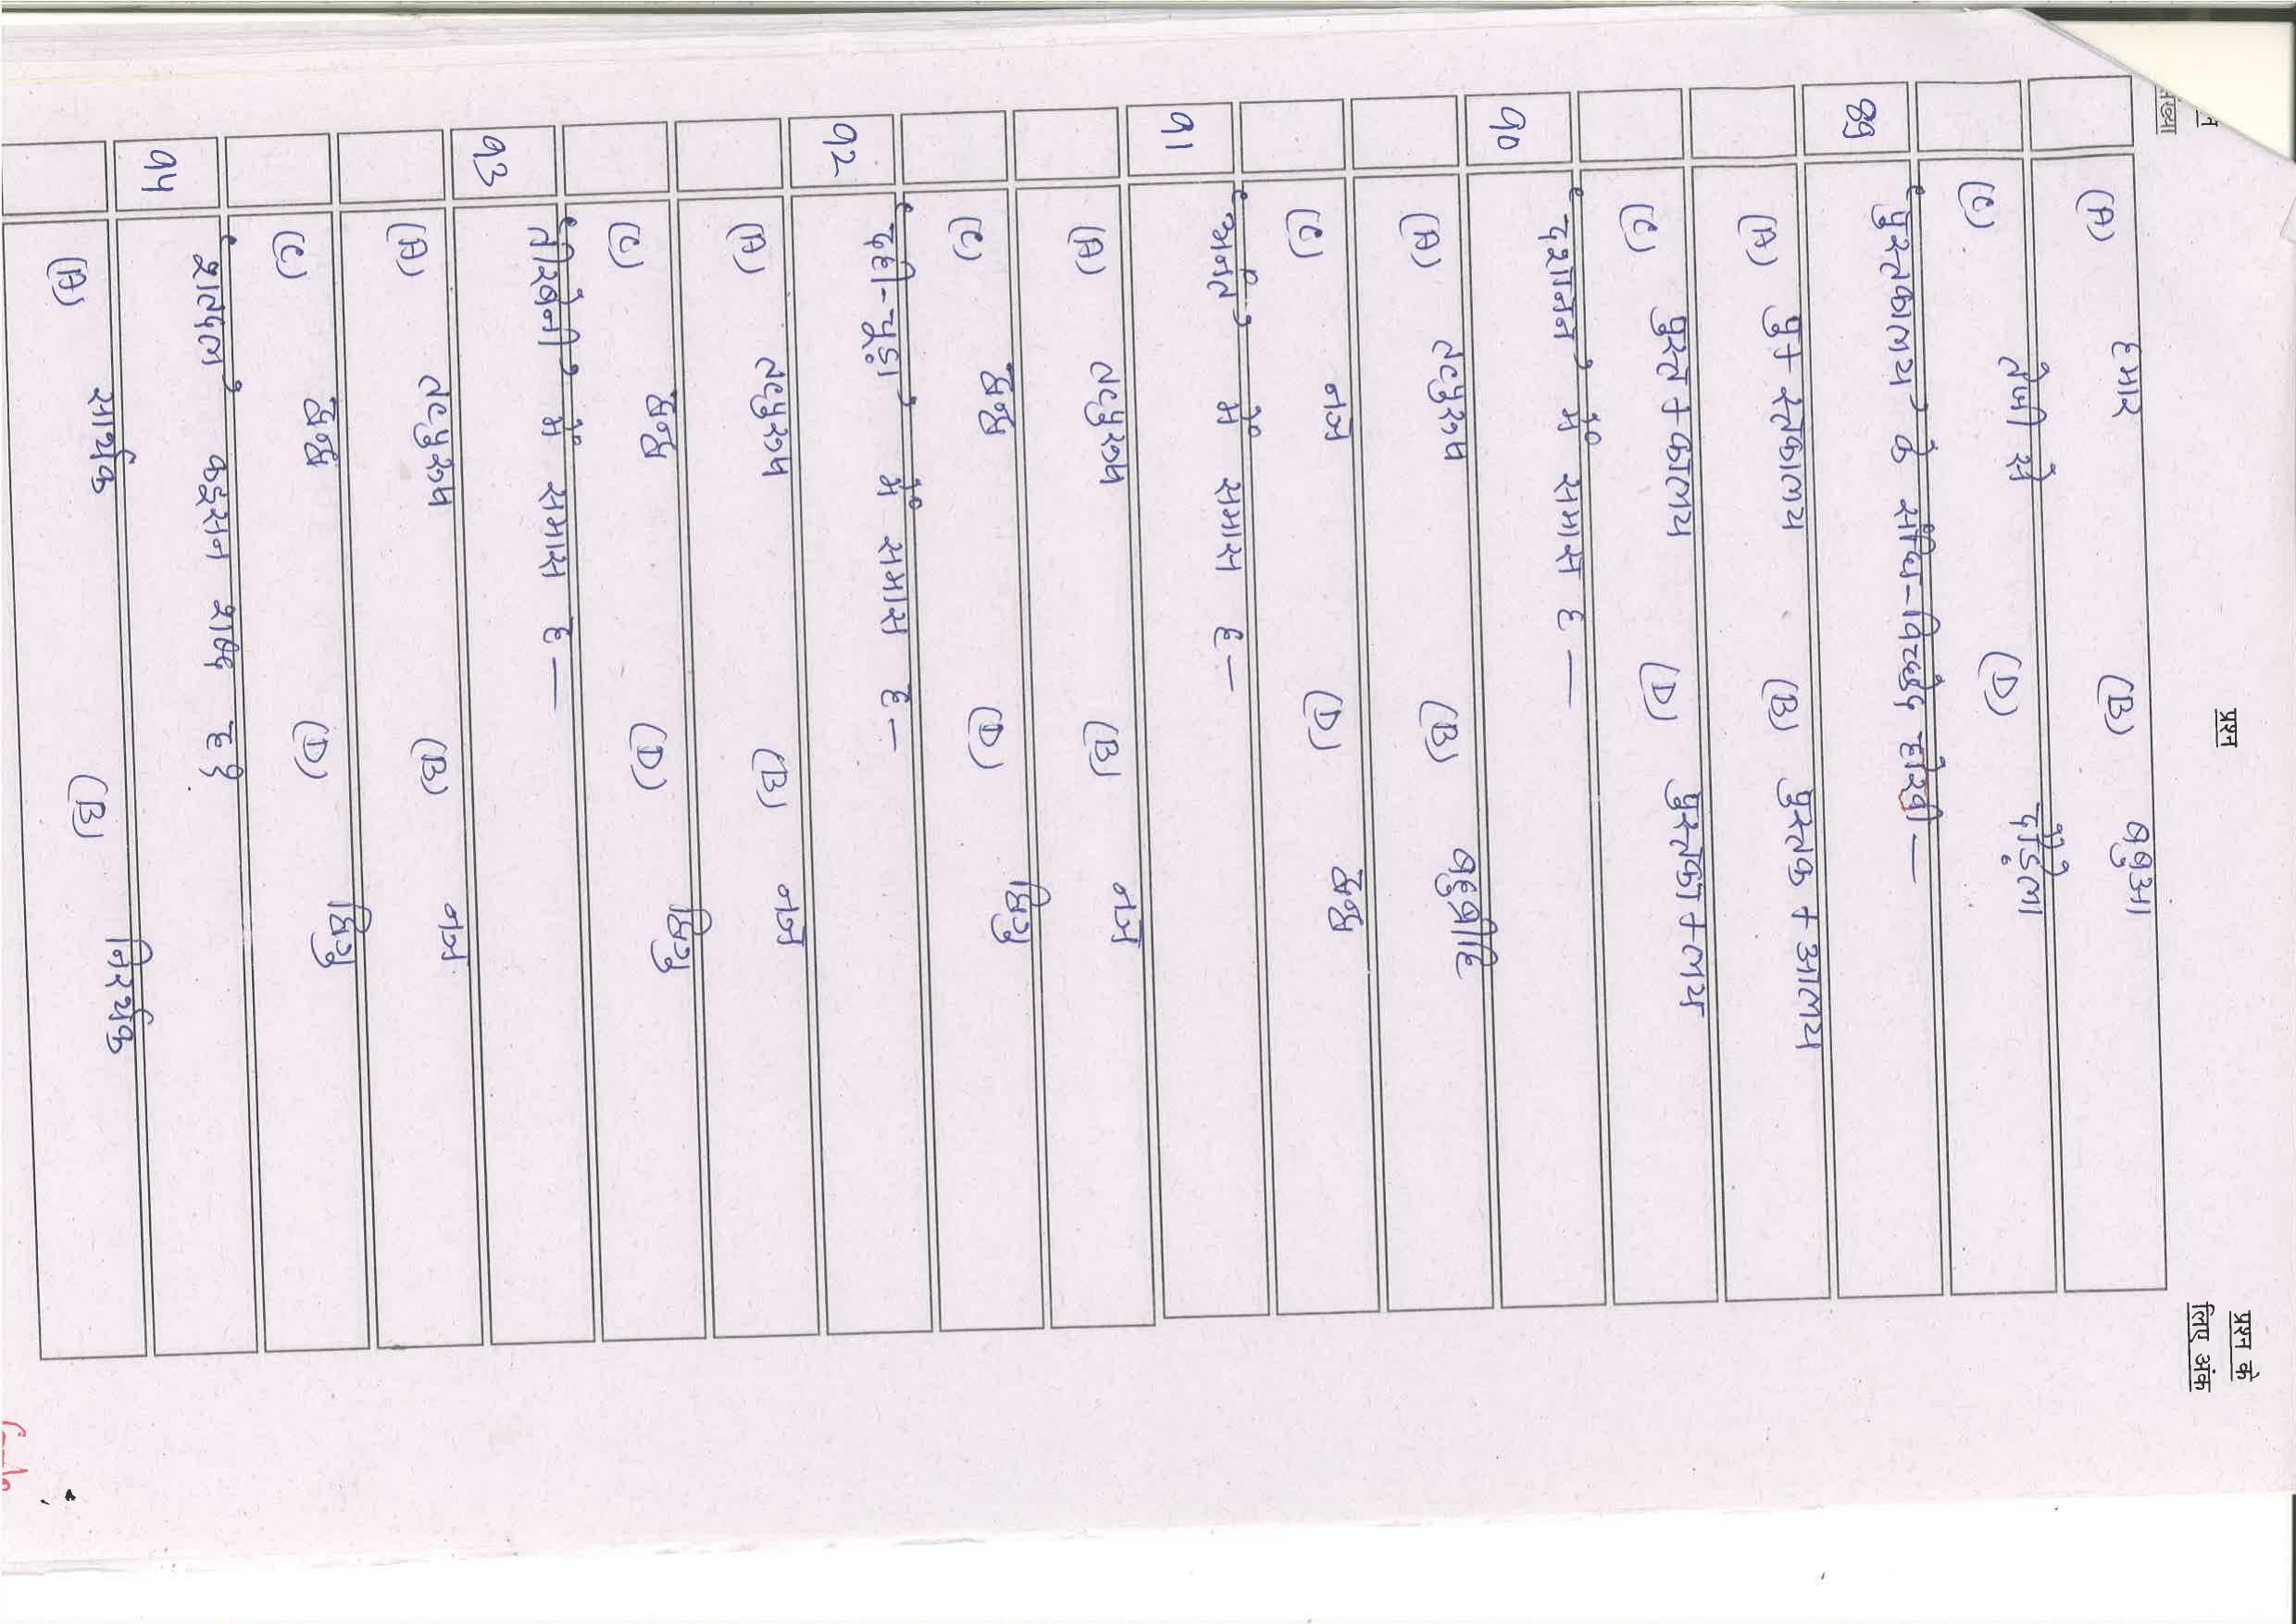 प्रश्न
प्रश्न के
लिए अंक
(A) हमार (B) बबुआ
(C) तेजी से (D) दौड़ेला
89 ‘पुस्तकालय’ के संधि-विच्छेद होखी —
(A) पु + स्तकालय (B) पुस्तक + आलय
(C) पुस्त + कालय (D) पुस्तका + लय
90 ‘दशानन’ में समास ह —
(A) तत्पुरूष (B) बहुब्रीहि
(C) नञ (D) द्वन्द्व
91 ‘अनंत’ में समास ह —
(A) तत्पुरूष (B) नञ
(C) द्वन्द्व (D) द्विगु
92 ‘दही-चूड़ा’ में समास ह —
(A) तत्पुरूष (B) नञ
(C) द्वन्द्व (D) द्विगु
93 में समास ह —
(A) तत्पुरूष (B) नञ
(C) द्वन्द्व (D) द्विगु
94 कइसन शब्द ह?
(A) सार्थक (B) निरर्थक